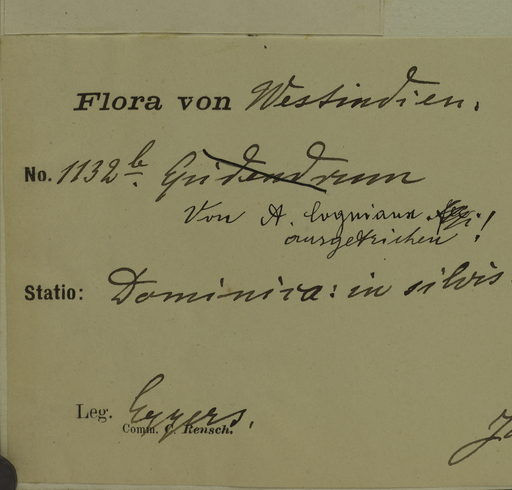 Flora von Westindien.
No. 1132b. Epidendrum
Von A. Cogniaux !
ausgetrichen
Statio: Dominica: in silvis
Leg. Eggers.
Comm. C. Rensch.